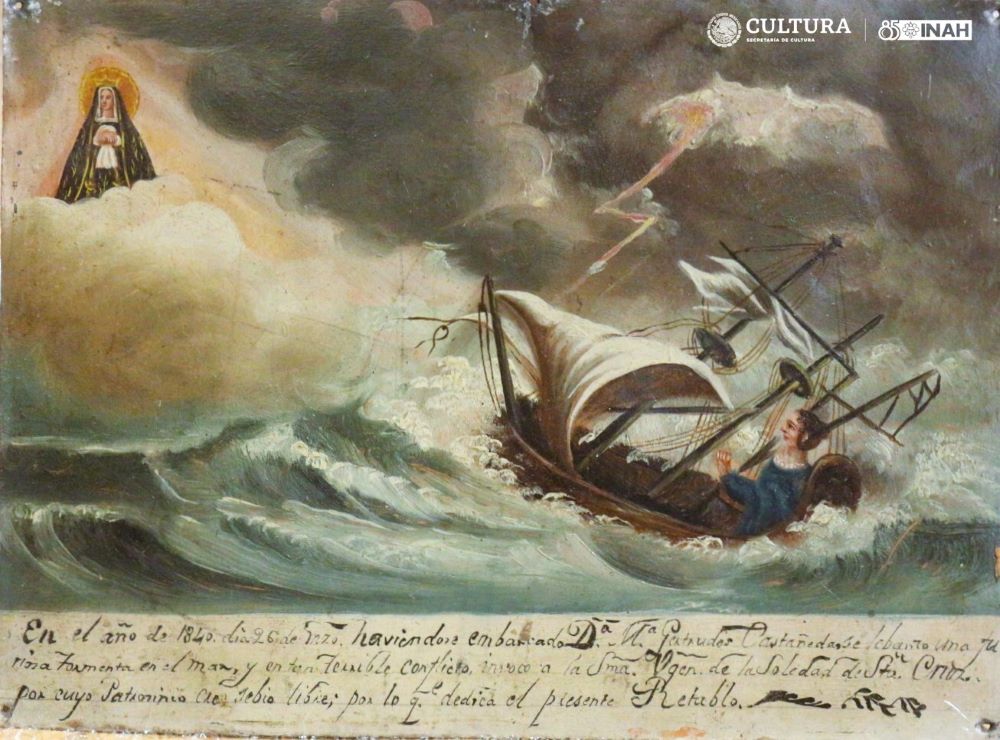 CULTURA
SECRETARÍA DE CULTURA
85 INAH
En el año de 1840. dia 26 de haviendose embarcado D.ª M.ª Gertrudes Castañeda, se lebanto una fu
riosa tormenta en el mar, y en tan terrible conflicto, invocó a la Sma. Vgen. de la Soledad de Sta. Cruz.
por cuyo Patrosinio cre se bio libre; por lo q.e dedica el presente Retablo.